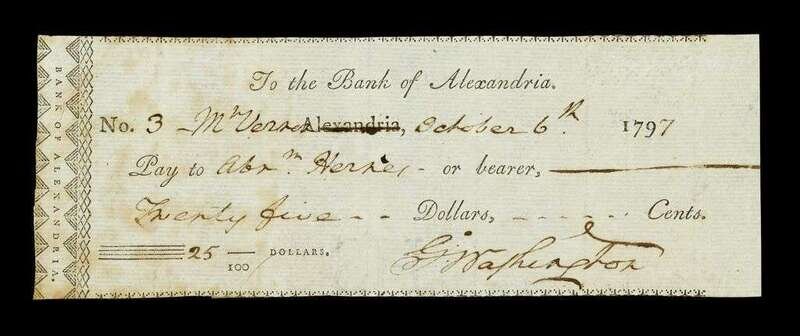 To the Bank of Alexandria.
No. 3 Mt Vernon Alexandria, October 6th 1797
Pay to Abrm. Hewes - or bearer,
Twenty five - - Dollars, - - - - - Cents.
25/100 DOLLARS.
Go Washington
BANK OF ALEXANDRIA.